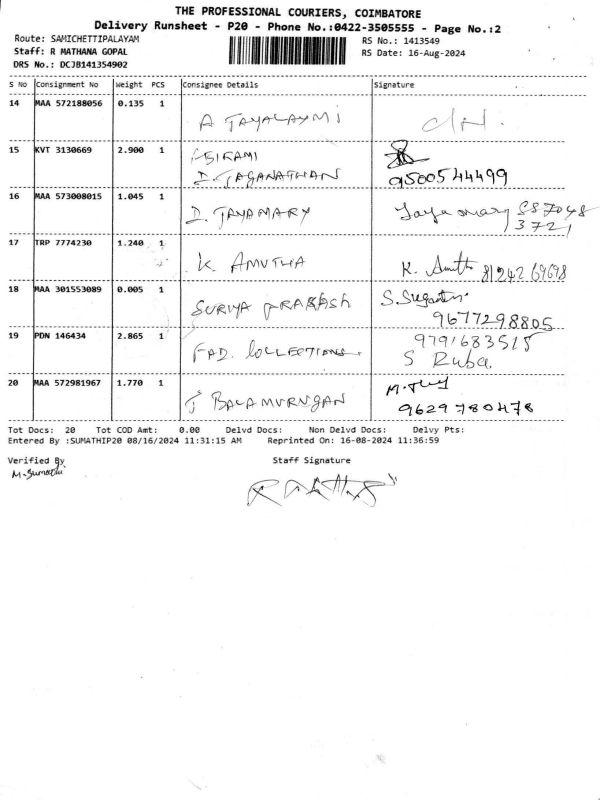 THE PROFESSIONAL COURIERS, COIMBATORE
Delivery Runsheet - P20 - Phone No.:0422-3505555 - Page No.:2
Route: SAMICHETTIPALAYAM
RS No.: 1413549
Staff: R MATHANA GOPAL
RS Date: 16-Aug-2024
DRS No.: DCJB141354902
S No Consignment No Weight PCS Consignee Details Signature
14 MAA 572188056 0.135 1 A JAYALAXMI
15 KVT 3130669 2.900 1 ABIRAMI
D. JAGANATHAN 9500544499
16 MAA 573008015 1.045 1 D. JAYAMARY Jayamary 887048
3721
17 TRP 7774230 1.240 1 K. AMUTHA K. Amutha 8124269698
18 MAA 301553089 0.005 1 SURIYA PRAKASH S.
9677298805
19 PDN 146434 2.865 1 FAD. COLLECTIONS. 9791683515
S Ruba.
20 MAA 572981967 1.770 1 BALAMURUGAN
9629780478
Tot Docs: 20 Tot COD Amt: 0.00 Delvd Docs: Non Delvd Docs: Delvy Pts:
Entered By :SUMATHIP20 08/16/2024 11:31:15 AM Reprinted On: 16-08-2024 11:36:59
Verified By Staff Signature
M. Sumathi